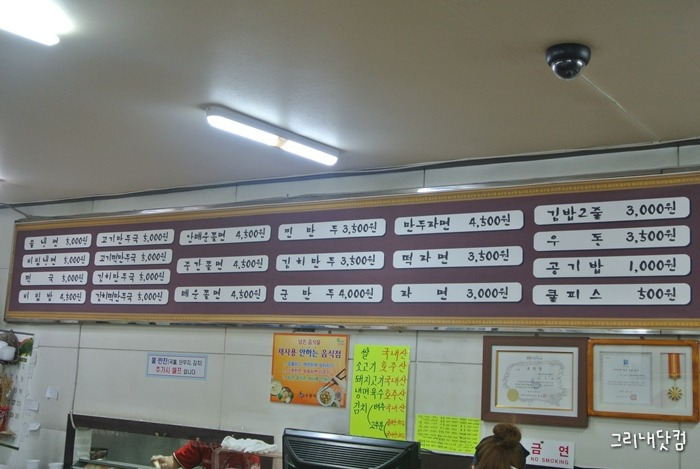 물냉면 5,000원
비빔냉면 5,000원
떡국 5,000원
비빔밥 4,500원
고기만두국 5,000원
고기떡만두국 5,000원
김치만두국 5,000원
김치떡만두국 5,000원
안매운쫄면 4,500원
중간쫄면 4,500원
매운쫄면 4,500원
찐만두 3,500원
김치만두 3,500원
군만두 4,000원
만두라면 4,500원
떡라면 3,500원
라면 3,000원
김밥2줄 3,000원
우동 3,500원
공기밥 1,000원
쿨피스 500원
물·반찬(국물, 단무지, 김치)
추가시 셀프 입니다
남은 음식물
재사용 안하는 음식점
쌀 국내산
소고기 호주산
돼지고기 국내산
냉면육수 호주산
김치 배추 국내산
고추가루
금연
NO SMOKING
그리내닷컴